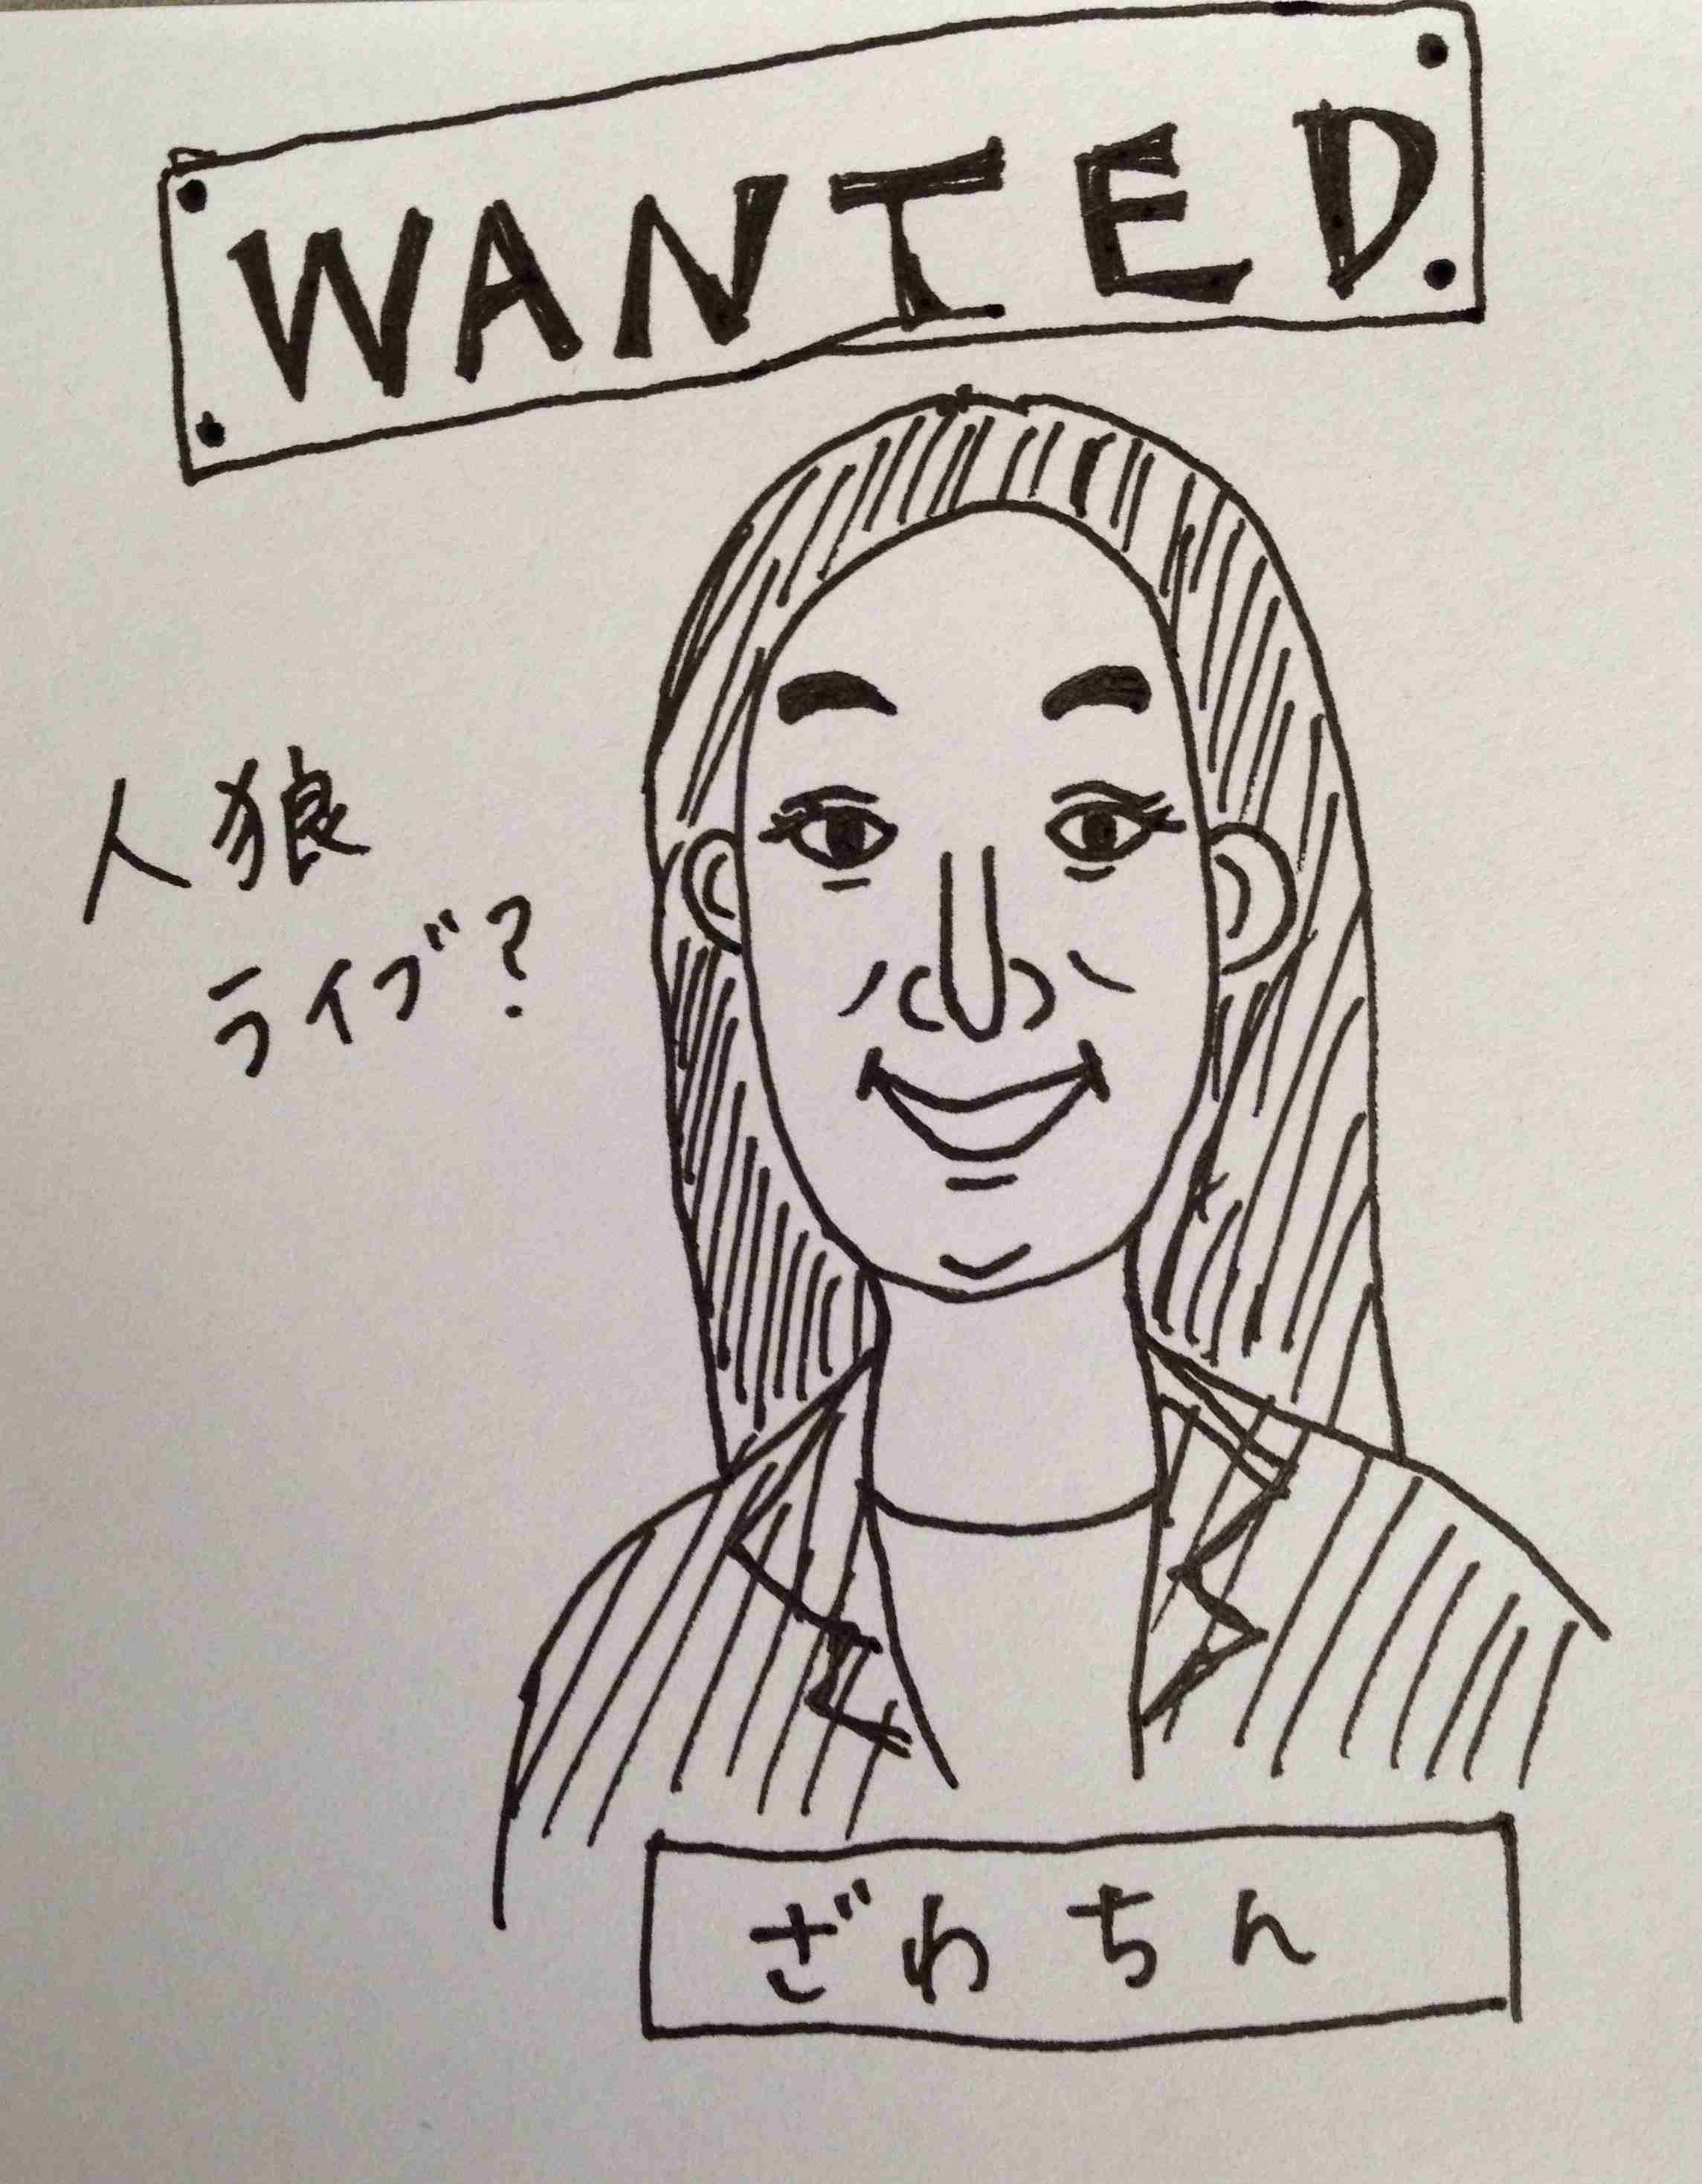 WANTED
人狼
ライブ?
ざわちん